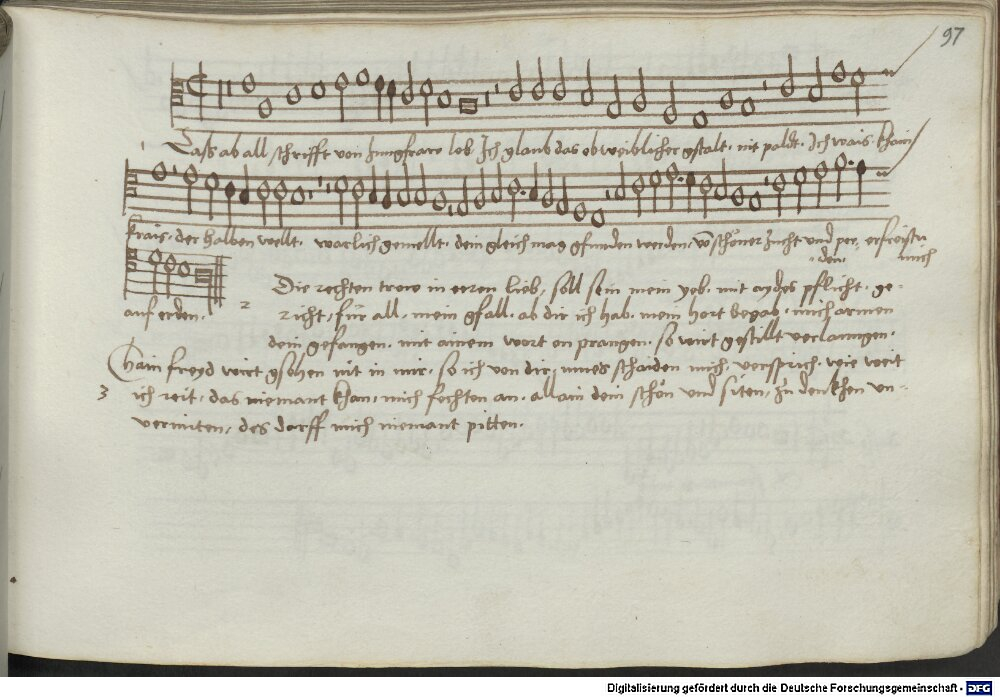 97
Laß ab all schrifft von Jungfraw lob Ich glaub das ob weiblicher gstalt. nit paldt. Ich wais. khain
krais. der halben wellt. warlich gemellt. dein gleich mag gfunden werden. vō schöner zucht und per, erfreistu
den. mich
auf erden.
2 Die rechten trew in eeren lieb, soll sein mein yeb. mit aydes pflicht. ge-
richt, für all. mein gfall. ab dir ich hab. mein hort begab. mich armen
dein gefangen. mit ainem wort en prangen. so wirt gestillt verlanngen.
Chain freyd wirt gsehen nit in mir. so ich von dir, mues schaiden mich, versprich. wie weit
3 ich reit, das niemant khan, mich fechten an. allain dein schön und siten, zu denkhen un-
vermiten, des darff mich niemant pitten.
Digitalisierung gefördert durch die Deutsche Forschungsgemeinschaft - DFG